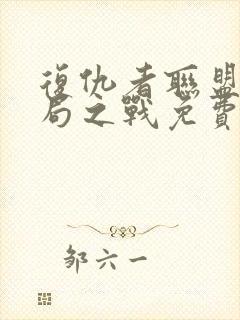 復仇者聯盟
局之戰免費
邹六一